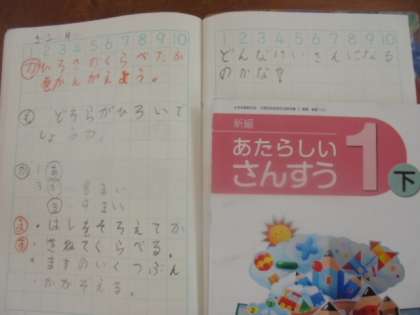 1 2 3 4 5 6 7 8 9 10
ひろさのくらべかた
をかんがえよう。
どちらがひろいで
しょうか。
8まい
9まい
・はしをそろえてか
さねてくらべる。
・ますのいくつぶん
かかぞえる。
1 2 3 4 5 6 7 8 9 10
どんなけいさんになる
のかな？
新編
あたらしい
さんすう
1
下